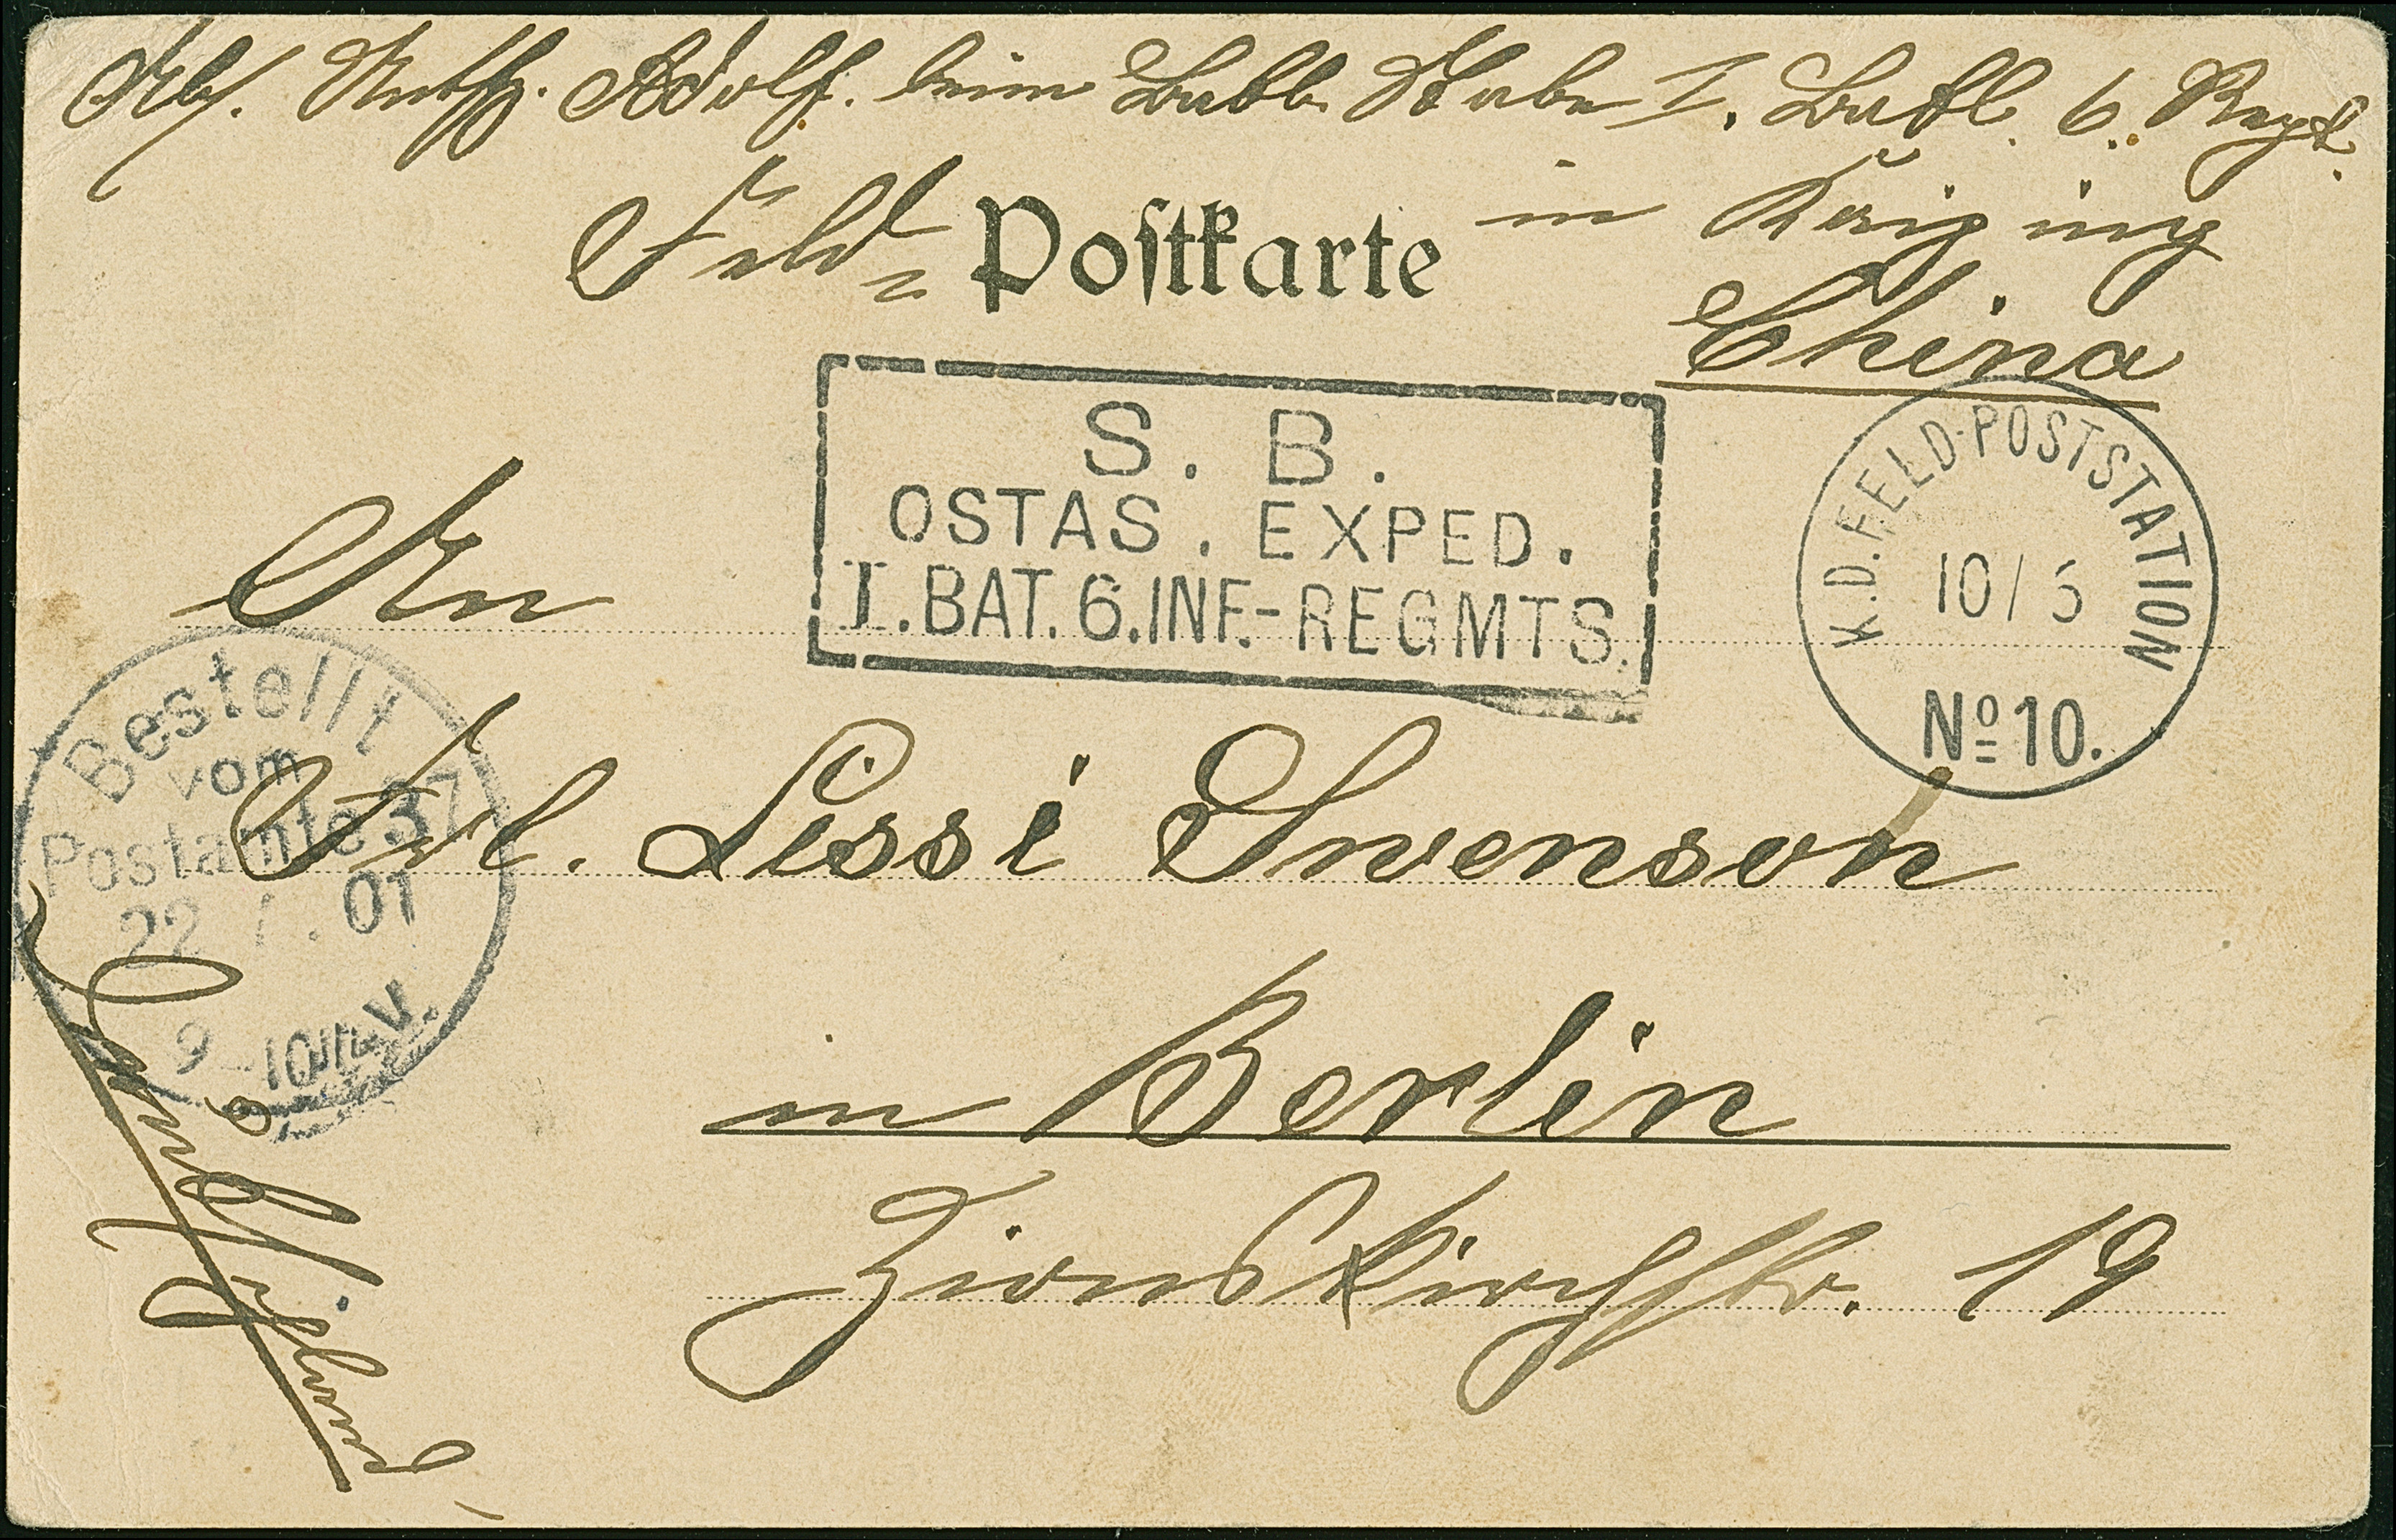 Abs. Untffz. Adolf. beim Batls. Stabe I. Batl. 6. Regt.
Feld- Postkarte in Kaiping
China
S. B.
OSTAS. EXPED.
I. BAT. 6. INF.-REGMTS.
K.D. FELD-POSTSTATION
10/5
No 10.
An
Bestellt
vom
Postamte 37
22 . 01
9-10 V.
Frl. Lissi Swenson
in Berlin
Zionskirchstr. 19
Deutschland